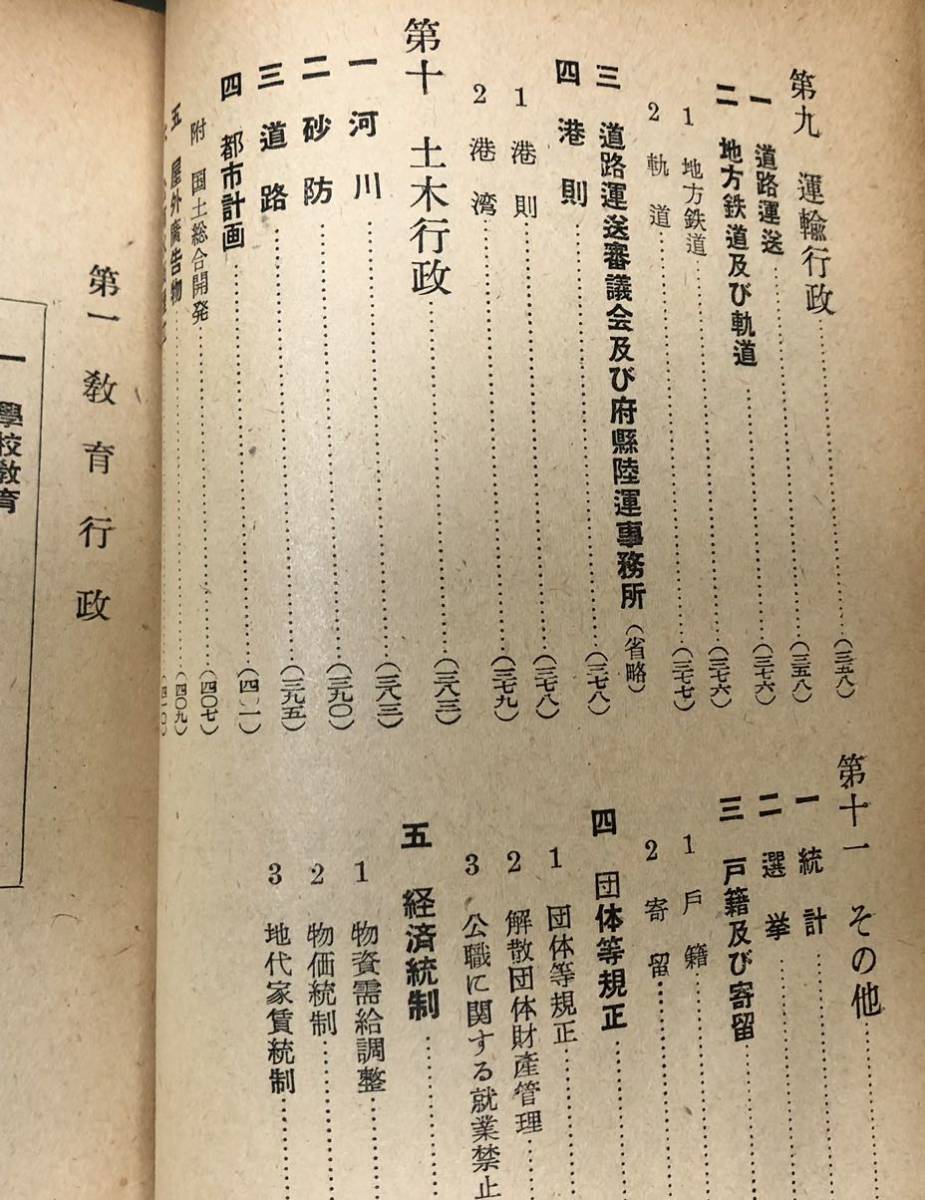 第九 運輸行政………(三五八)
一 道路運送………(三五八)
二 地方鉄道及び軌道………(三七六)
1 地方鉄道………(三七六)
2 軌道………(三七七)
三 道路運送審議会及び府縣陸運事務所(省略)
四 港則………(三七八)
1 港則………(三七八)
2 港湾………(三七九)
第十 土木行政………(三八三)
一 河川………(三八三)
二 砂防………(三九〇)
三 道路………(三九五)
四 都市計画………(四〇一)
附 国土総合開発………(四〇七)
五 屋外廣告物………(四〇九)
(四一〇)
第十一 その他………
一 統計………
二 選挙………
三 戸籍及び寄留………
1 戸籍………
2 寄留………
四 団体等規正………
1 団体等規正………
2 解散団体財産管理………
3 公職に関する就業禁止
五 経済統制………
1 物資需給調整………
2 物価統制………
3 地代家賃統制………
第一 教育行政
一 學校教育